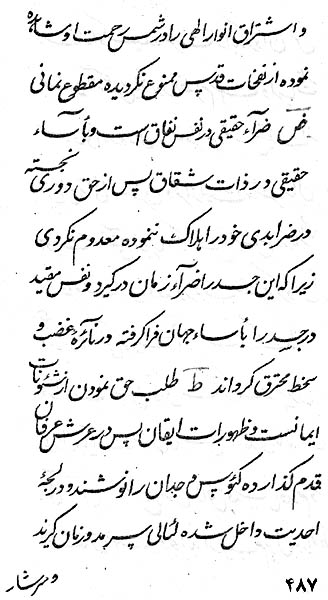 و اشتراق انوار الهی را در شمس رحمت او مشاهده
نموده از نفخات قدس ممنوع نگردیده مقطوع نمانی
ض ضرآء حقیقی در نفس نفاق است و بأسآء
حقیقی در ذات شقاق پس از حق دوری نجسته
در ضر ابدی خود را هلاک ننموده معدوم نگردی
زیرا که این جسد را ضرآء زمان درگیرد و نفس مقید
در جسد را بأساء جهان فرا گرفته در نائره غضب و
سخط محترق گرداند ط طلب حق نمودن از شئونات
ایمانست و ظهورات ایقان پس در عرش عرفان
قدم گذارده کئوس وجدان را نوشند و در لجهٔ
احدیت داخل شده لئالی پس مدور نان گیرند
و سرشار
۴۸۷